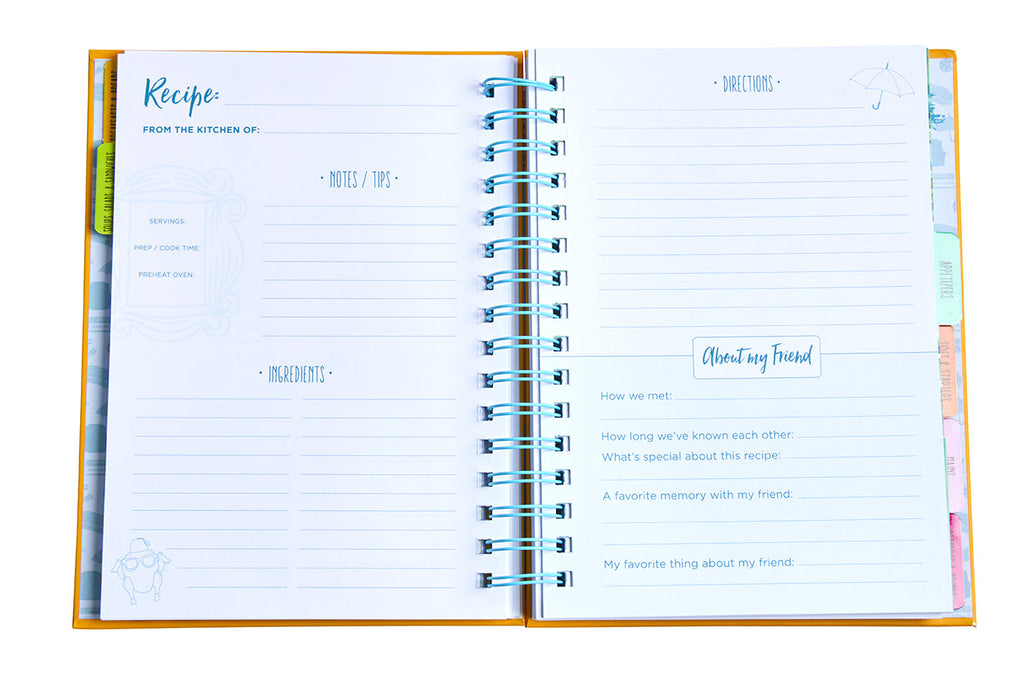 Recipe:
FROM THE KITCHEN OF:
NOTES / TIPS
SERVINGS:
PREP / COOK TIME:
PREHEAT OVEN:
INGREDIENTS
SOUPS, SALADS & SANDWICHES
DIRECTIONS
About my Friend
How we met:
How long we've known each other:
What's special about this recipe:
A favorite memory with my friend:
My favorite thing about my friend:
APPETIZERS
SIDES & STARTERS
MAINS